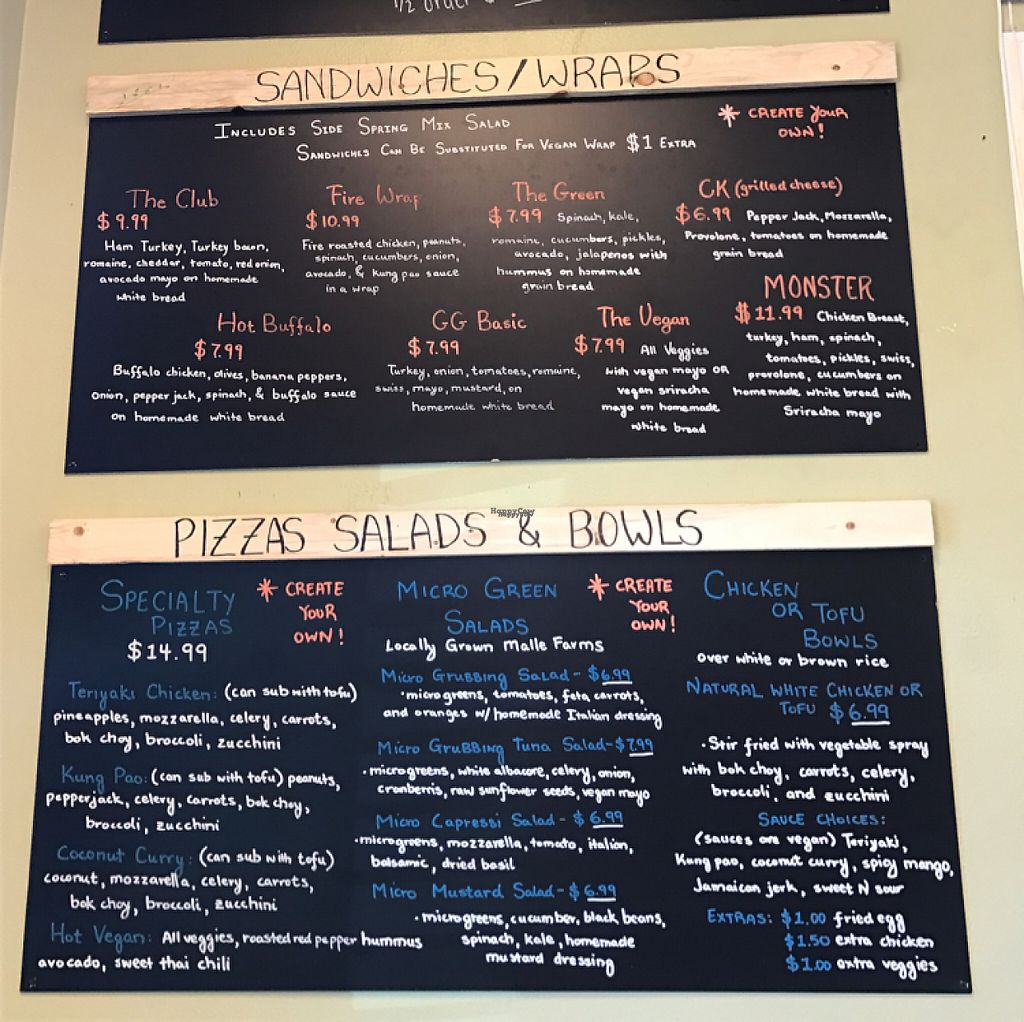 1/2 order
SANDWICHES/WRAPS
INCLUDES SIDE SPRING MIX SALAD
SANDWICHES CAN BE SUBSTITUTED FOR VEGAN WRAP $1 EXTRA
* CREATE YOUR
OWN!
The Club
$9.99
Ham Turkey, Turkey bacon,
romaine, cheddar, tomato, red onion,
avocado mayo on homemade
white bread
Fire Wrap
$10.99
Fire roasted chicken, peanuts,
spinach, cucumbers, onion,
avocado, & kung pao sauce
in a wrap
The Green
$7.99 Spinach, kale,
romaine, cucumbers, pickles,
avocado, jalapenos with
hummus on homemade
grain bread
CK (grilled cheese)
$6.99 Pepper Jack, Mozzarella,
Provolone, tomatoes on homemade
grain bread
Hot Buffalo
$7.99
Buffalo chicken, olives, banana peppers,
onion, pepper jack, spinach, & buffalo sauce
on homemade white bread
GG Basic
$7.99
Turkey, onion, tomatoes, romaine,
swiss, mayo, mustard, on
homemade white bread
The Vegan
$7.99 All Veggies
with vegan mayo OR
vegan sriracha
mayo on homemade
white bread
MONSTER
$11.99 Chicken Breast,
turkey, ham, spinach,
tomatoes, pickles, swiss,
provolone, cucumbers on
homemade white bread with
Sriracha mayo
HappyCow
PIZZAS SALADS & BOWLS
SPECIALTY
PIZZAS
$14.99
* CREATE
YOUR
OWN!
Teriyaki Chicken: (can sub with tofu)
pineapples, mozzarella, celery, carrots,
bok choy, broccoli, zucchini
Kung Pao: (can sub with tofu) peanuts,
pepperjack, celery, carrots, bok choy,
broccoli, zucchini
Coconut Curry: (can sub with tofu)
coconut, mozzarella, celery, carrots,
bok choy, broccoli, zucchini
Hot Vegan: All veggies, roasted red pepper hummus
avocado, sweet thai chili
MICRO GREEN
SALADS
* CREATE
YOUR
OWN!
Locally Grown Malle Farms
MICRO GRUBBING SALAD - $6.99
• microgreens, tomatoes, feta, carrots,
and oranges w/ homemade Italian dressing
MICRO GRUBBING TUNA SALAD - $7.99
• microgreens, white albacore, celery, onion,
cranberris, raw sunflower seeds, vegan mayo
MICRO CAPRESSI SALAD - $6.99
• microgreens, mozzarella, tomato, italian,
balsamic, dried basil
MICRO MUSTARD SALAD - $6.99
• microgreens, cucumber, black beans,
spinach, kale, homemade
mustard dressing
CHICKEN
OR TOFU
BOWLS
over white or brown rice
NATURAL WHITE CHICKEN OR
TOFU $6.99
• Stir fried with vegetable spray
with bok choy, carrots, celery,
broccoli, and zucchini
SAUCE CHOICES:
(sauces are vegan) Teriyaki,
Kung pao, coconut curry, spicy mango,
Jamaican jerk, sweet N sour
EXTRAS: $1.00 fried egg
$1.50 extra chicken
$1.00 extra veggies